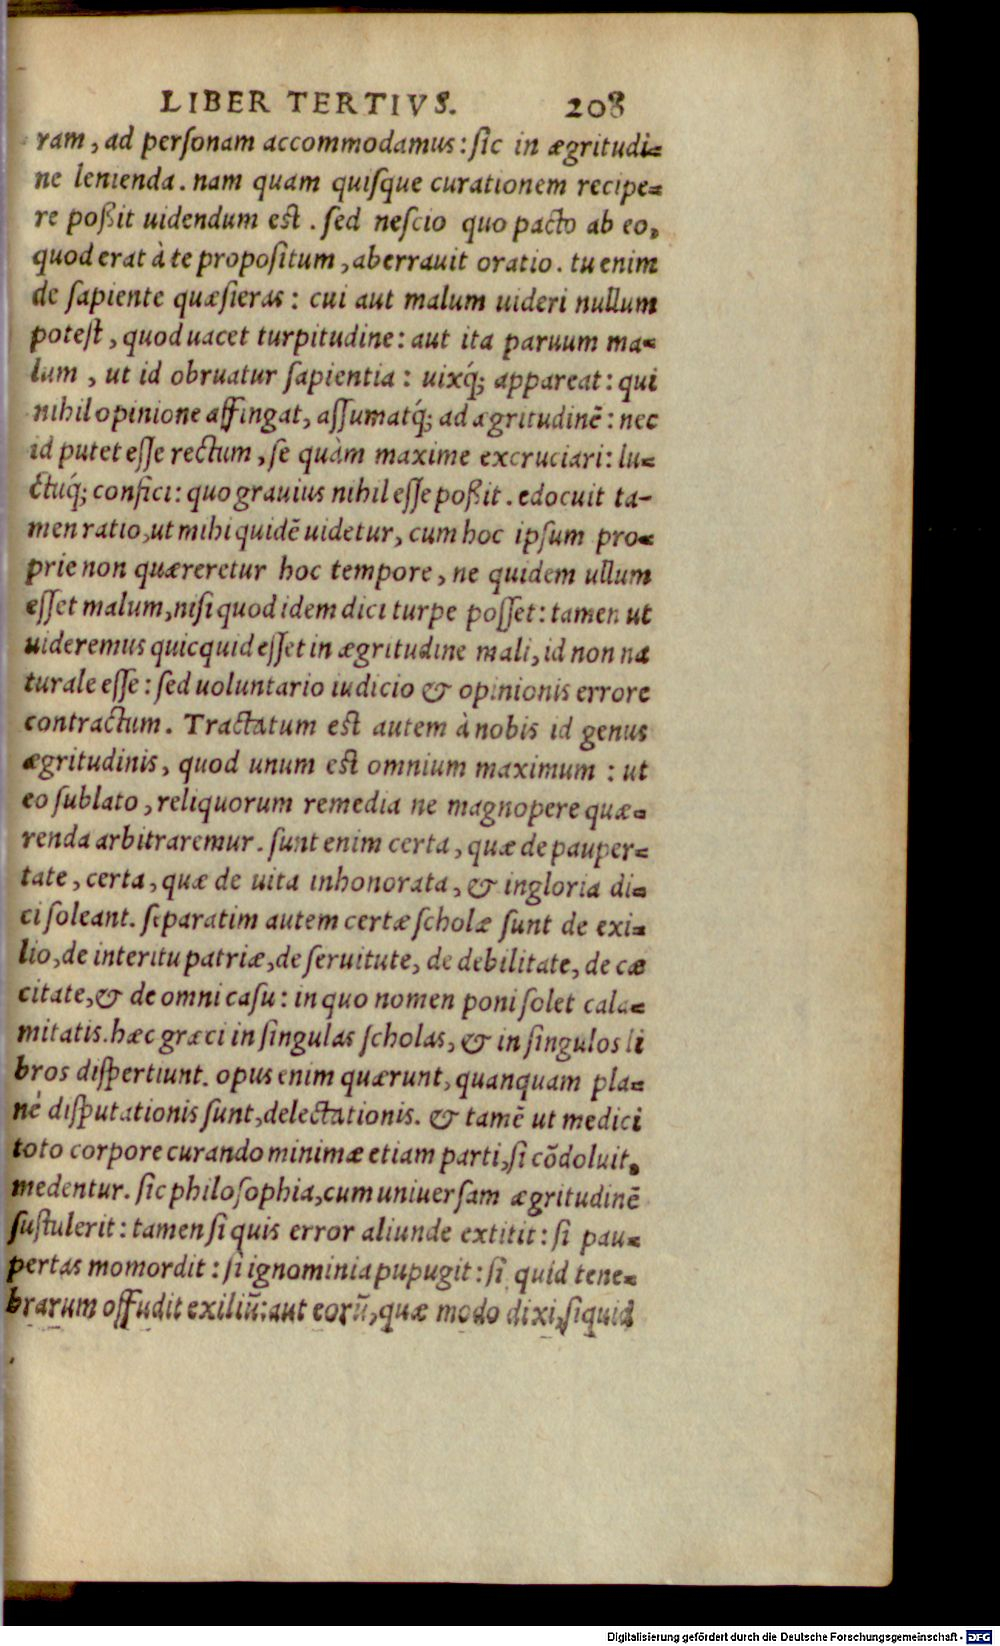 LIBER TERTIVS. 208
ram, ad perſonam accommodamus: ſic in ægritudi=
ne lenienda. nam quam quiſque curationem recipe=
re poßit uidendum est. ſed neſcio quo pacto ab eo,
quod erat à te propoſitum, aberrauit oratio. tu enim
de ſapiente quæſieras: cui aut malum uideri nullum
poteſt, quod uacet turpitudine: aut ita paruum ma=
lum, ut id obruatur ſapientia: uixq́; appareat: qui
nihil opinione affingat, aſſumatq́; ad ægritudinē: nec
id putet eſſe rectum, ſe quàm maxime excruciari: lu=
ctuq́; confici: quo grauius nihil eſſe poßit. edocuit ta-
men ratio, ut mihi quidē uidetur, cum hoc ipſum pro=
prie non quæreretur hoc tempore, ne quidem ullum
eſſet malum, niſi quod idem dici turpe poſſet: tamen ut
uideremus quicquid eſſet in ægritudine mali, id non na
turale eſſe: ſed uoluntario iudicio & opinionis errore
contractum. Tractatum est autem à nobis id genus
ægritudinis, quod unum est omnium maximum: ut
eo ſublato, reliquorum remedia ne magnopere quæ=
renda arbitraremur. ſunt enim certa, quæ de pauper=
tate, certa, quæ de uita inhonorata, & ingloria di=
ci ſoleant. ſeparatim autem certæ ſcholæ ſunt de exi=
lio, de interitu patriæ, de ſeruitute, de debilitate, de cæ
citate, & de omni caſu: in quo nomen poni ſolet cala=
mitatis. hæc græci in ſingulas ſcholas, & in ſingulos li
bros diſpertiunt. opus enim quærunt, quanquam pla=
né diſputationis ſunt, delectationis. & tamē ut medici
toto corpore curando minimæ etiam parti, ſi cōdoluit,
medentur. ſic philoſophia, cum uniuerſam ægritudinē
ſuſtulerit: tamen ſi quis error aliunde extitit: ſi pau=
pertas momordit: ſi ignominia pupugit: ſi quid tene=
brarum offudit exiliū: aut eorū, quæ modo dixi, ſiquid
Digitalisierung gefördert durch die Deutsche Forschungsgemeinschaft - DFG